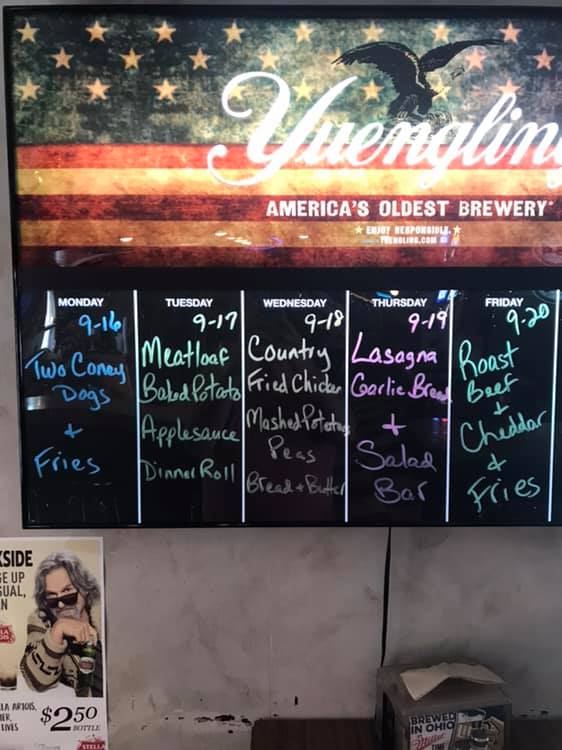 Yuengling
AMERICA'S OLDEST BREWERY
ENJOY RESPONSIBLY.
YUENGLING.COM
MONDAY
9-16
Two Coney
Dogs
+
Fries
TUESDAY
9-17
Meatloaf
Baked Potato
Applesauce
Dinner Roll
WEDNESDAY
9-18
Country
Fried Chicken
Mashed Potatoes
Peas
Bread + Butter
THURSDAY
9-19
Lasagna
Garlic Bread
+
Salad
Bar
FRIDAY
9-20
Roast
Beef
+
Cheddar
&
Fries
KSIDE
GE UP
SUAL,
N
LA ARTOIS,
LIVES
$2.50
BOTTLE
STELLA
BREWED
IN OHIO
Miller
TIME